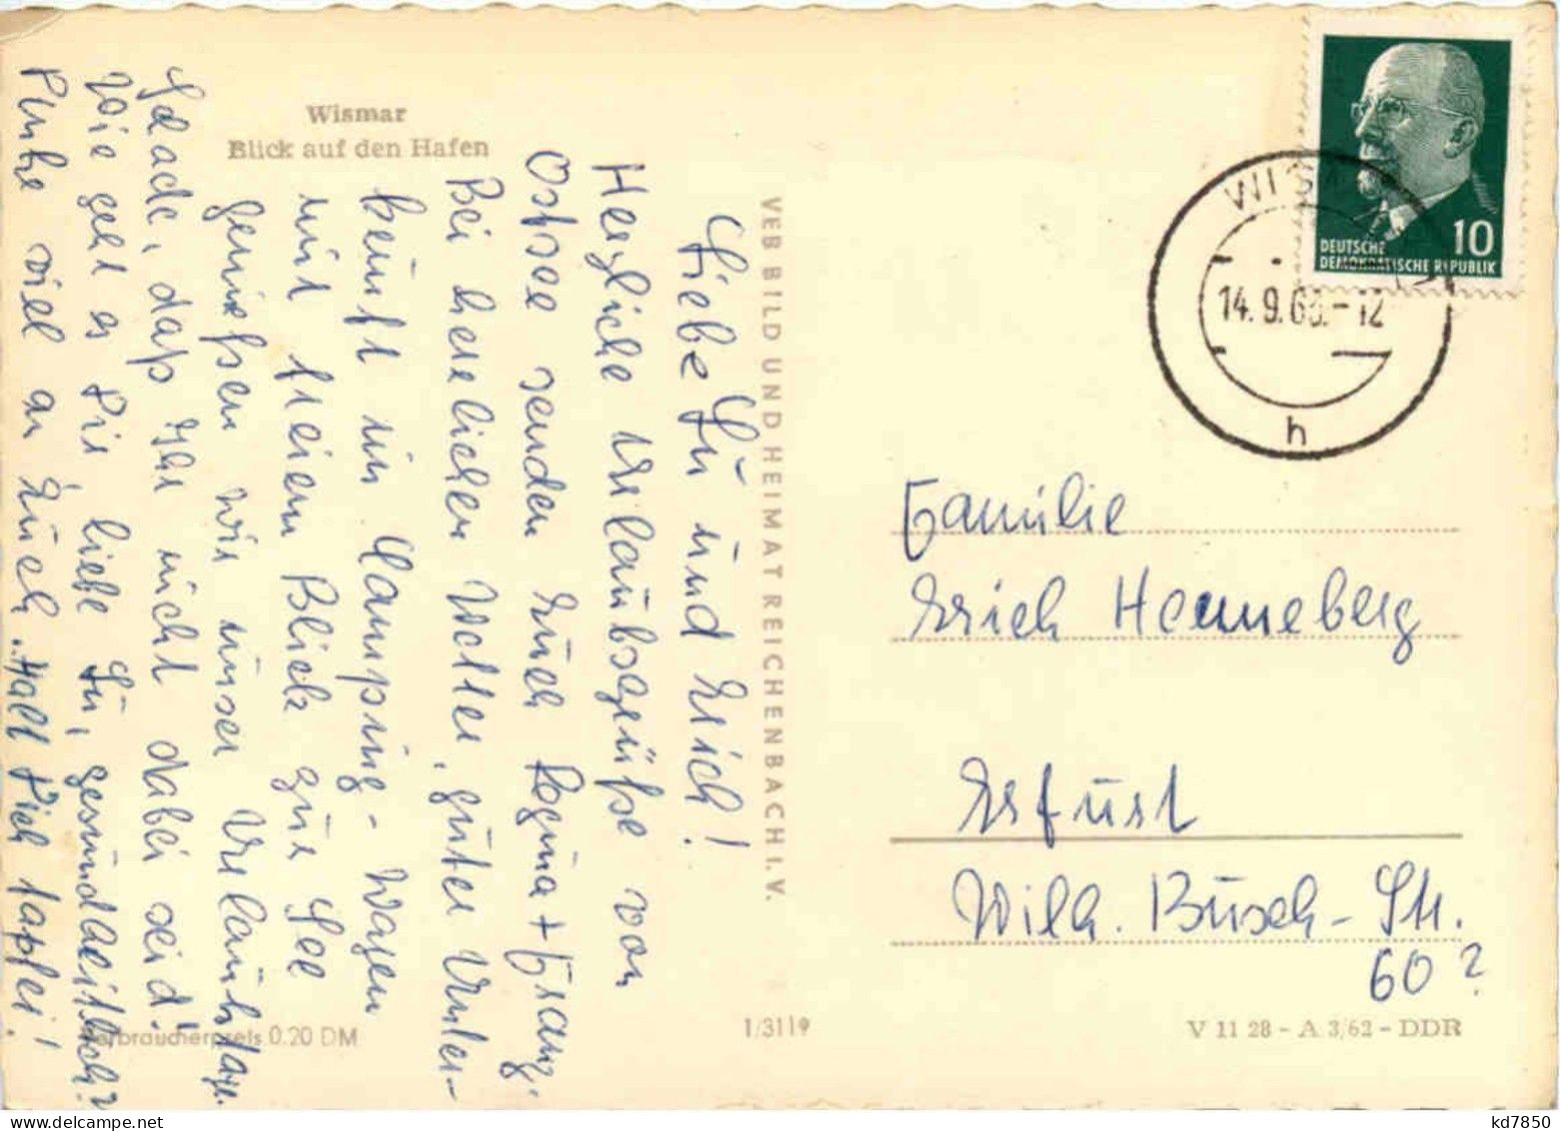 Wismar
Blick auf den Hafen
Liebe Lu und Erich!
Herzliche Urlaubsgrüße von
Ostsee senden Euch Regina + Franz.
Bei herrlichem Wetter, guter Unter-
kunft im Camping-Wagen
mit freiem Blick zur See
genießen wir unser Urlaubstage.
Schade, daß Ihr nicht dabei seid!
Wie geht es Dir, liebe Lu, gesundheitlich?
Denke viel an Euch. "Halt Dich tapfer!
VEB BILD UND HEIMAT REICHENBACH I. V.
10
DEUTSCHE
DEMOKRATISCHE REPUBLIK
14.9.6 -12
h
Familie
Erich Henneberg
Erfurt
Wilh. Busch-Str.
60?
Verbraucherpreis 0.20 DM
1/3119
V 11 28 - A 3/62 - DDR
kd7850